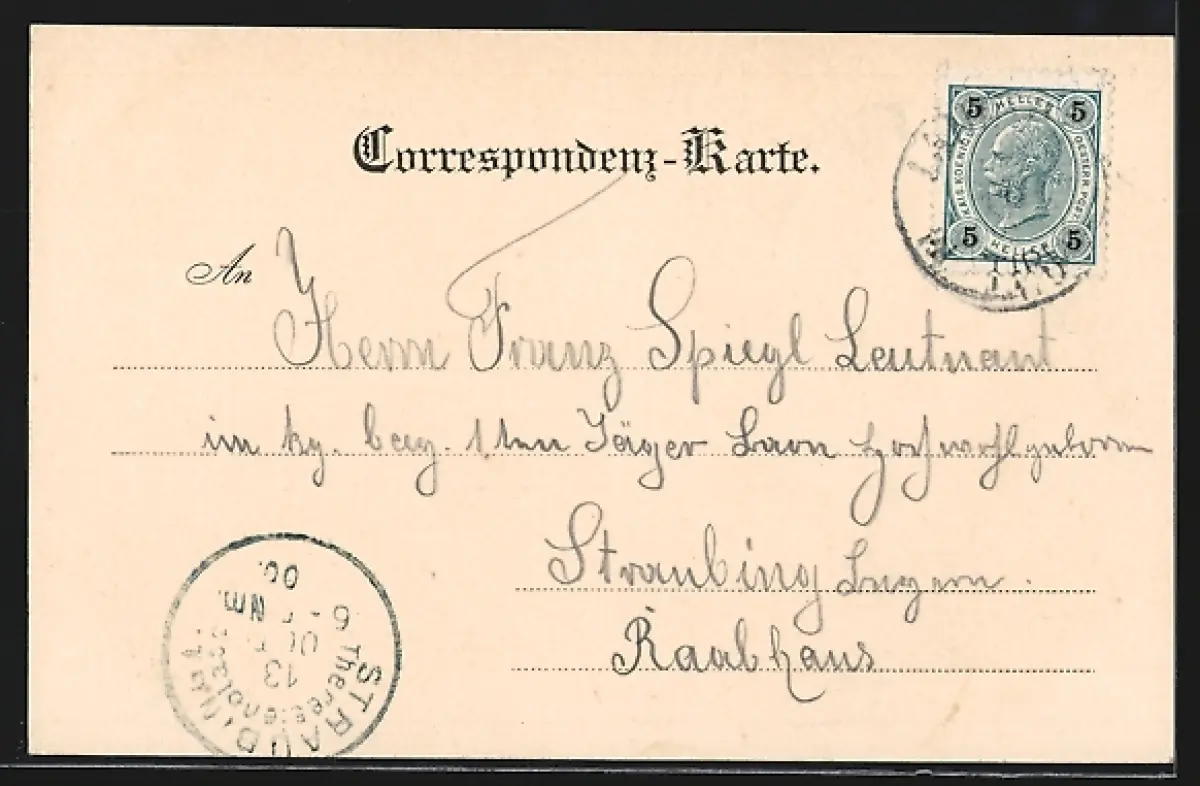 Correspondenz-Karte.
5 HELLER 5
KAIS. KOENIGL. OESTERR. POST
5 HELLER 5
An Herrn Franz Spiegl Leutnant
im kg. bayr. 1ten Jäger Baon Hochwohlgeboren
Straubing Bayern.
Raabhaus
STRAUBING
Theresienplatz
13
6-7 Nm.
00.